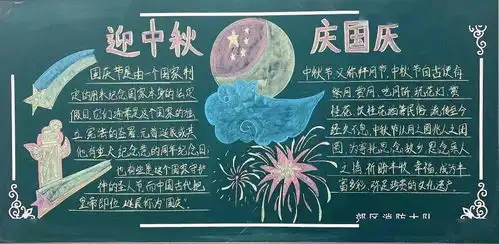 迎中秋 庆国庆
国庆节是由一个国家制
定的用来纪念国家本身的法定
假日。它们通常是这个国家的独
立、宪法的签署、元首诞辰或其
他有重大纪念意义的周年纪念日;
也有些是这个国家守护
神的圣人节。而中国古代把
皇帝即位、诞辰称为“国庆”。
中秋节,又称拜月节,中秋节自古便有
祭月、赏月、吃月饼、玩花灯、赏
桂花、饮桂花酒等民俗,流传至今
经久不息。中秋节以月之圆兆人之团
圆,为寄托思念故乡,思念亲人
之情,祈盼丰收、幸福,成为丰
富多彩、弥足珍贵的文化遗产。
郊区消防大队